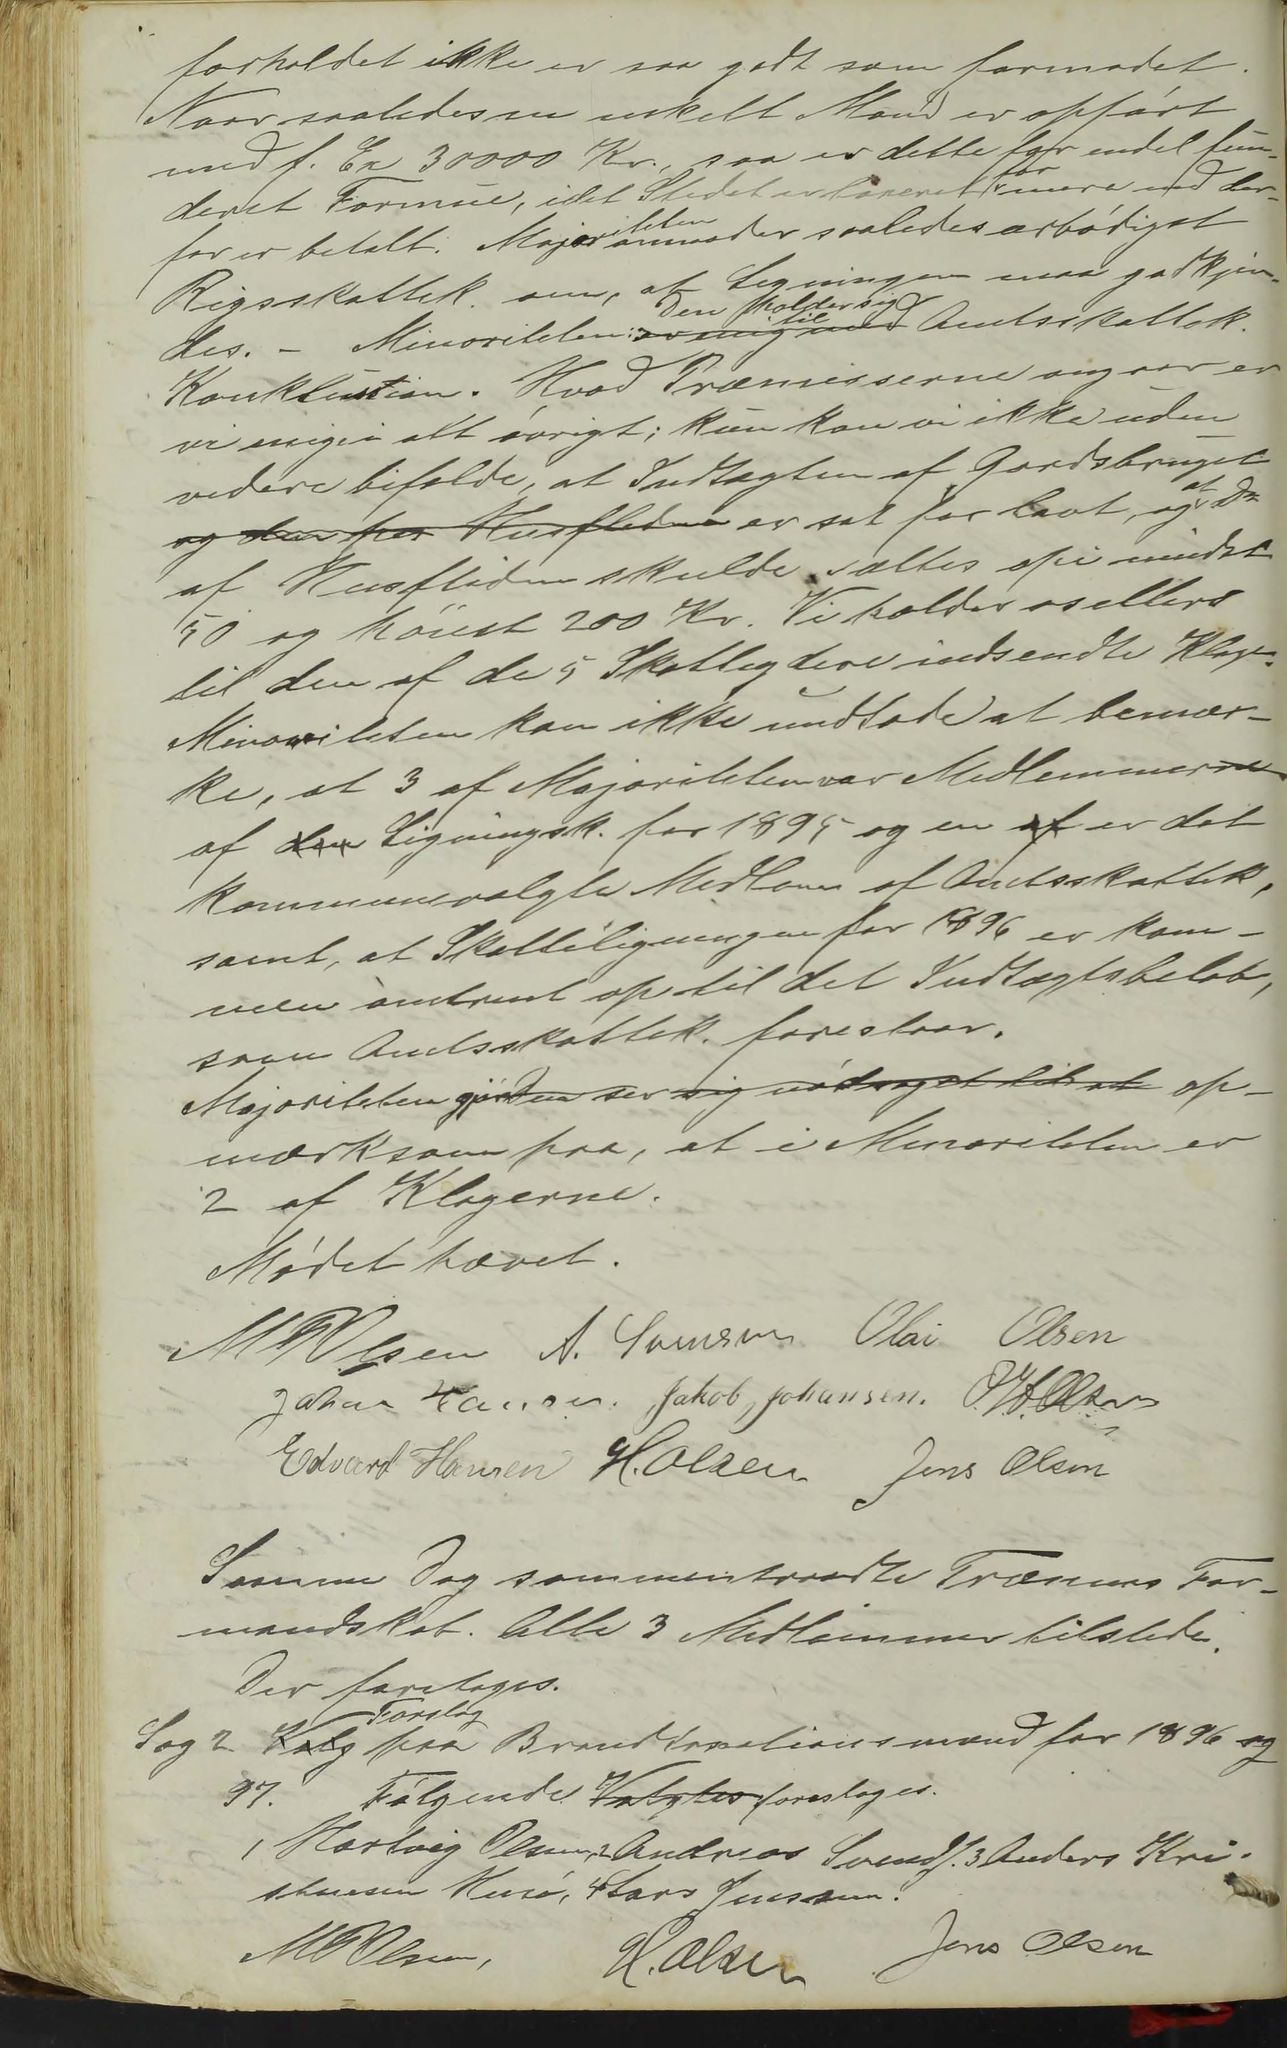 forholdet ikke er saa godt som formodet.
Naar saaledes en enkelt Mand er opført
med f. Ex 30000 Kr., saa er dette for endel fun-
deret Formue, idet Stedet er taxeret for mere end der-
for er betalt. Majoriteten anmoder saaledes ærbødigst
Rigsskattek. om, at Ligningen maa godkjen-
des. - Minoriteten: den holder sig til Amtsskattek.
Konklution. Hvad Præmisserne angaar er
vi enige i alt øvrigt; kun kan vi ikke uden
videre bifalde, at Indtægten af Gardsbruget
og den fra Husfliden er sat for lavt, og at Do
af Husfliden skulde sættes op i mindst
50 og høiest 200 Kr. Vi holder os ellers
til den af de 5 Skatteydere indsendte Klage.
Minoriteten kan ikke undlade at bemær-
ke, at 3 af Majoriteten var Medlemmerne
af den Ligningsk. for 1895 og en af er det
kommunevalgte Medlem af Amtsskattek,
samt, at Skatteligningen for 1896 er kom-
men omtrent op til det Indtægtsbeløb,
som Amtsskattek. foreslaar.
Majoriteten gjør Den ser sig nødsaget til at op-
mærksom paa, at i Minoriteten er
2 af Klagerne.
Mødet hævet.
M R Olsen A. Svensen Olai Olsen
Johan Hansen. Jakob Johansen. O. H. Olsen
Edvard Hansen H. Olsen Jens Olsen
Samme Dag sammentraadte Trænens For-
mandskab. Alle 3 Medlemmer tilstede.
Der foretoges.
Sag 2 Valg Forslag paa Brandtaxationsmænd for 1896 og
97. Følgende Valgtes foresloges.
1 Hartvig Olsen, 2 Andreas Svends. 3 Anders Kri-
stensen Husø, 4 Lars Jensen.
M R Olsen, H. Olsen Jens Olsen